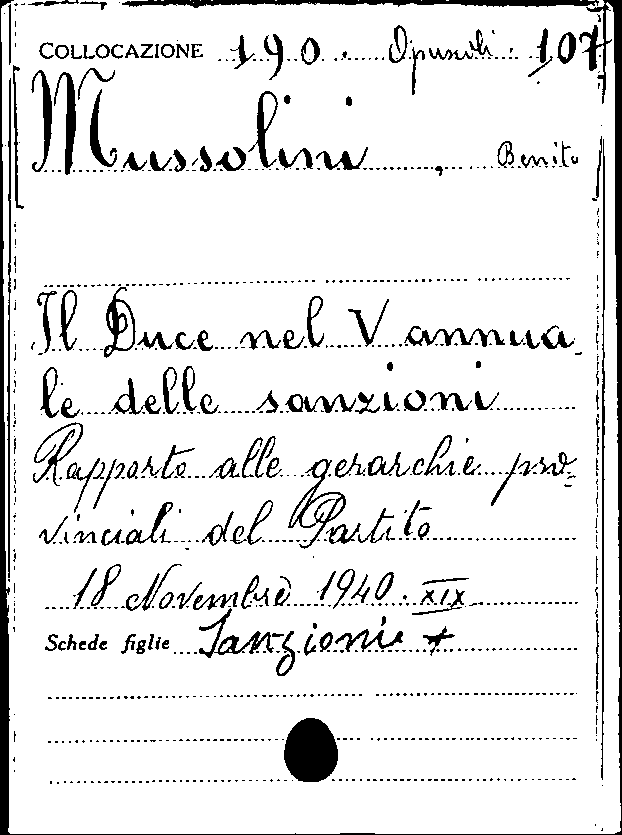 COLLOCAZIONE 190. Opuscoli. 107
Mussolini, Benito
Il Duce nel V annua
le delle sanzioni
Rapporto alle gerarchie pro=
vinciali del Partito
18 Novembre 1940. XIX
Schede figlie Sanzioni +